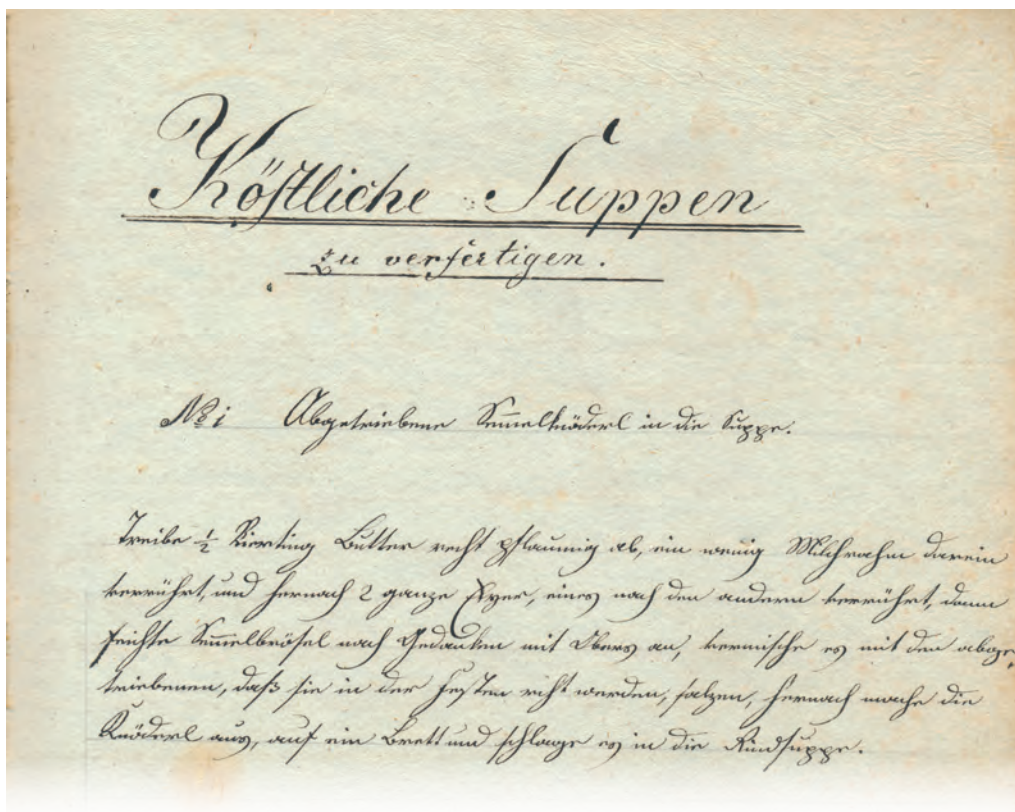 Köstliche Suppen
zu verfertigen.
No 1 Abgetriebene Semmelknöderl in die Suppe.
Treibe ½ Vierting Butter recht pflaumig ab, ein wenig Milchrahm darein
verrührt, und hernach 2 ganze Eyer, eines nach den andern verrührt, dann
feichte Semmelbrösel nach Gedanken mit Obers an, vermische es mit den abge
triebenen, daß sie in der Festen recht werden, salzen, hernach mache die
Knöderl aus, auf ein Brett und schlage es in die Rindsuppe.